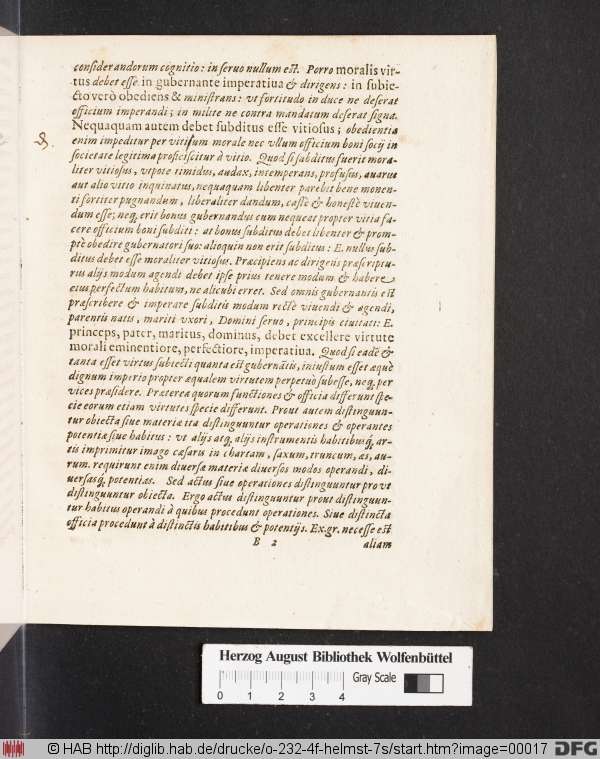 considerandorum cognitio: in seruo nullum est. Porro moralis vir-
tus debet esse in gubernante imperatiua & dirigens: in subie-
cto verò obediens & ministrans: vt fortitudo in duce ne deserat
officium imperandi; in milite ne contra mandatum deserat signa.
Nequaquam autem debet subditus esse vitiosus; obedientia
enim impeditur per vitium morale nec vllum officium boni socij in
societate legitima proficiscitur à vitio. Quod si subditus fuerit mora-
liter vitiosus, vtpote timidus, audax, intemperans, profusus, auarus
aut alio vitio inquinatus, nequaquam libenter parebit bene monen-
ti fortiter pugnandum, liberaliter dandum, castè & honestè viuen-
dum esse; neq; erit bonus gubernandus cum nequeat propter vitia fa-
cere officium boni subditi: at bonus subditus debet libenter & prom-
ptè obedire gubernatori suo: alioquin non erit subditus: E. nullus sub-
ditus debet esse moraliter vitiosus. Præcipiens ac dirigens præscriptu-
rus alijs modum agendi debet ipse prius tenere modum & habere
eius perfectum habitum, ne alicubi erret. Sed omnis gubernantis est
præscribere & imperare subditis modum rectè viuendi & agendi,
parentis natis, mariti vxori, Domini seruo, principis ciuitati: E.
princeps, pater, maritus, dominus, debet excellere virtute
morali eminentiore, perfectiore, imperatiua. Quod si eadē &
tanta esset virtus subiecti quanta est gubernātis, iniustum esset æquè
dignum imperio propter æqualem virtutem perpetuò subesse, neq; per
vices præsidere. Præterea quorum functiones & officia differunt spe-
cie eorum etiam virtutes specie differunt. Prout autem distinguun-
tur obiecta siue materiæ ita distinguuntur operationes & operantes
potentiæ siue habitus: vt alijs atq; alijs instrumentis habitibusq́; ar-
tis imprimitur imago cæsaris in chartam, saxum, truncum, æs, au-
rum. requirunt enim diuersæ materiæ diuersos modos operandi, di-
uersasq́; potentias. Sed actus siue operationes distinguuntur pro vt
distinguuntur obiecta. Ergo actus distinguuntur prout distinguun-
tur habitus operandi à quibus procedunt operationes. Siue distincta
officia procedunt à distinctis habitibus & potentijs. Ex. gr. necesse est
B 2 aliam
Herzog August Bibliothek Wolfenbüttel
0 1 2 3 4 Gray Scale
© HAB http://diglib.hab.de/drucke/o-232-4f-helmst-7s/start.htm?image=00017 DFG